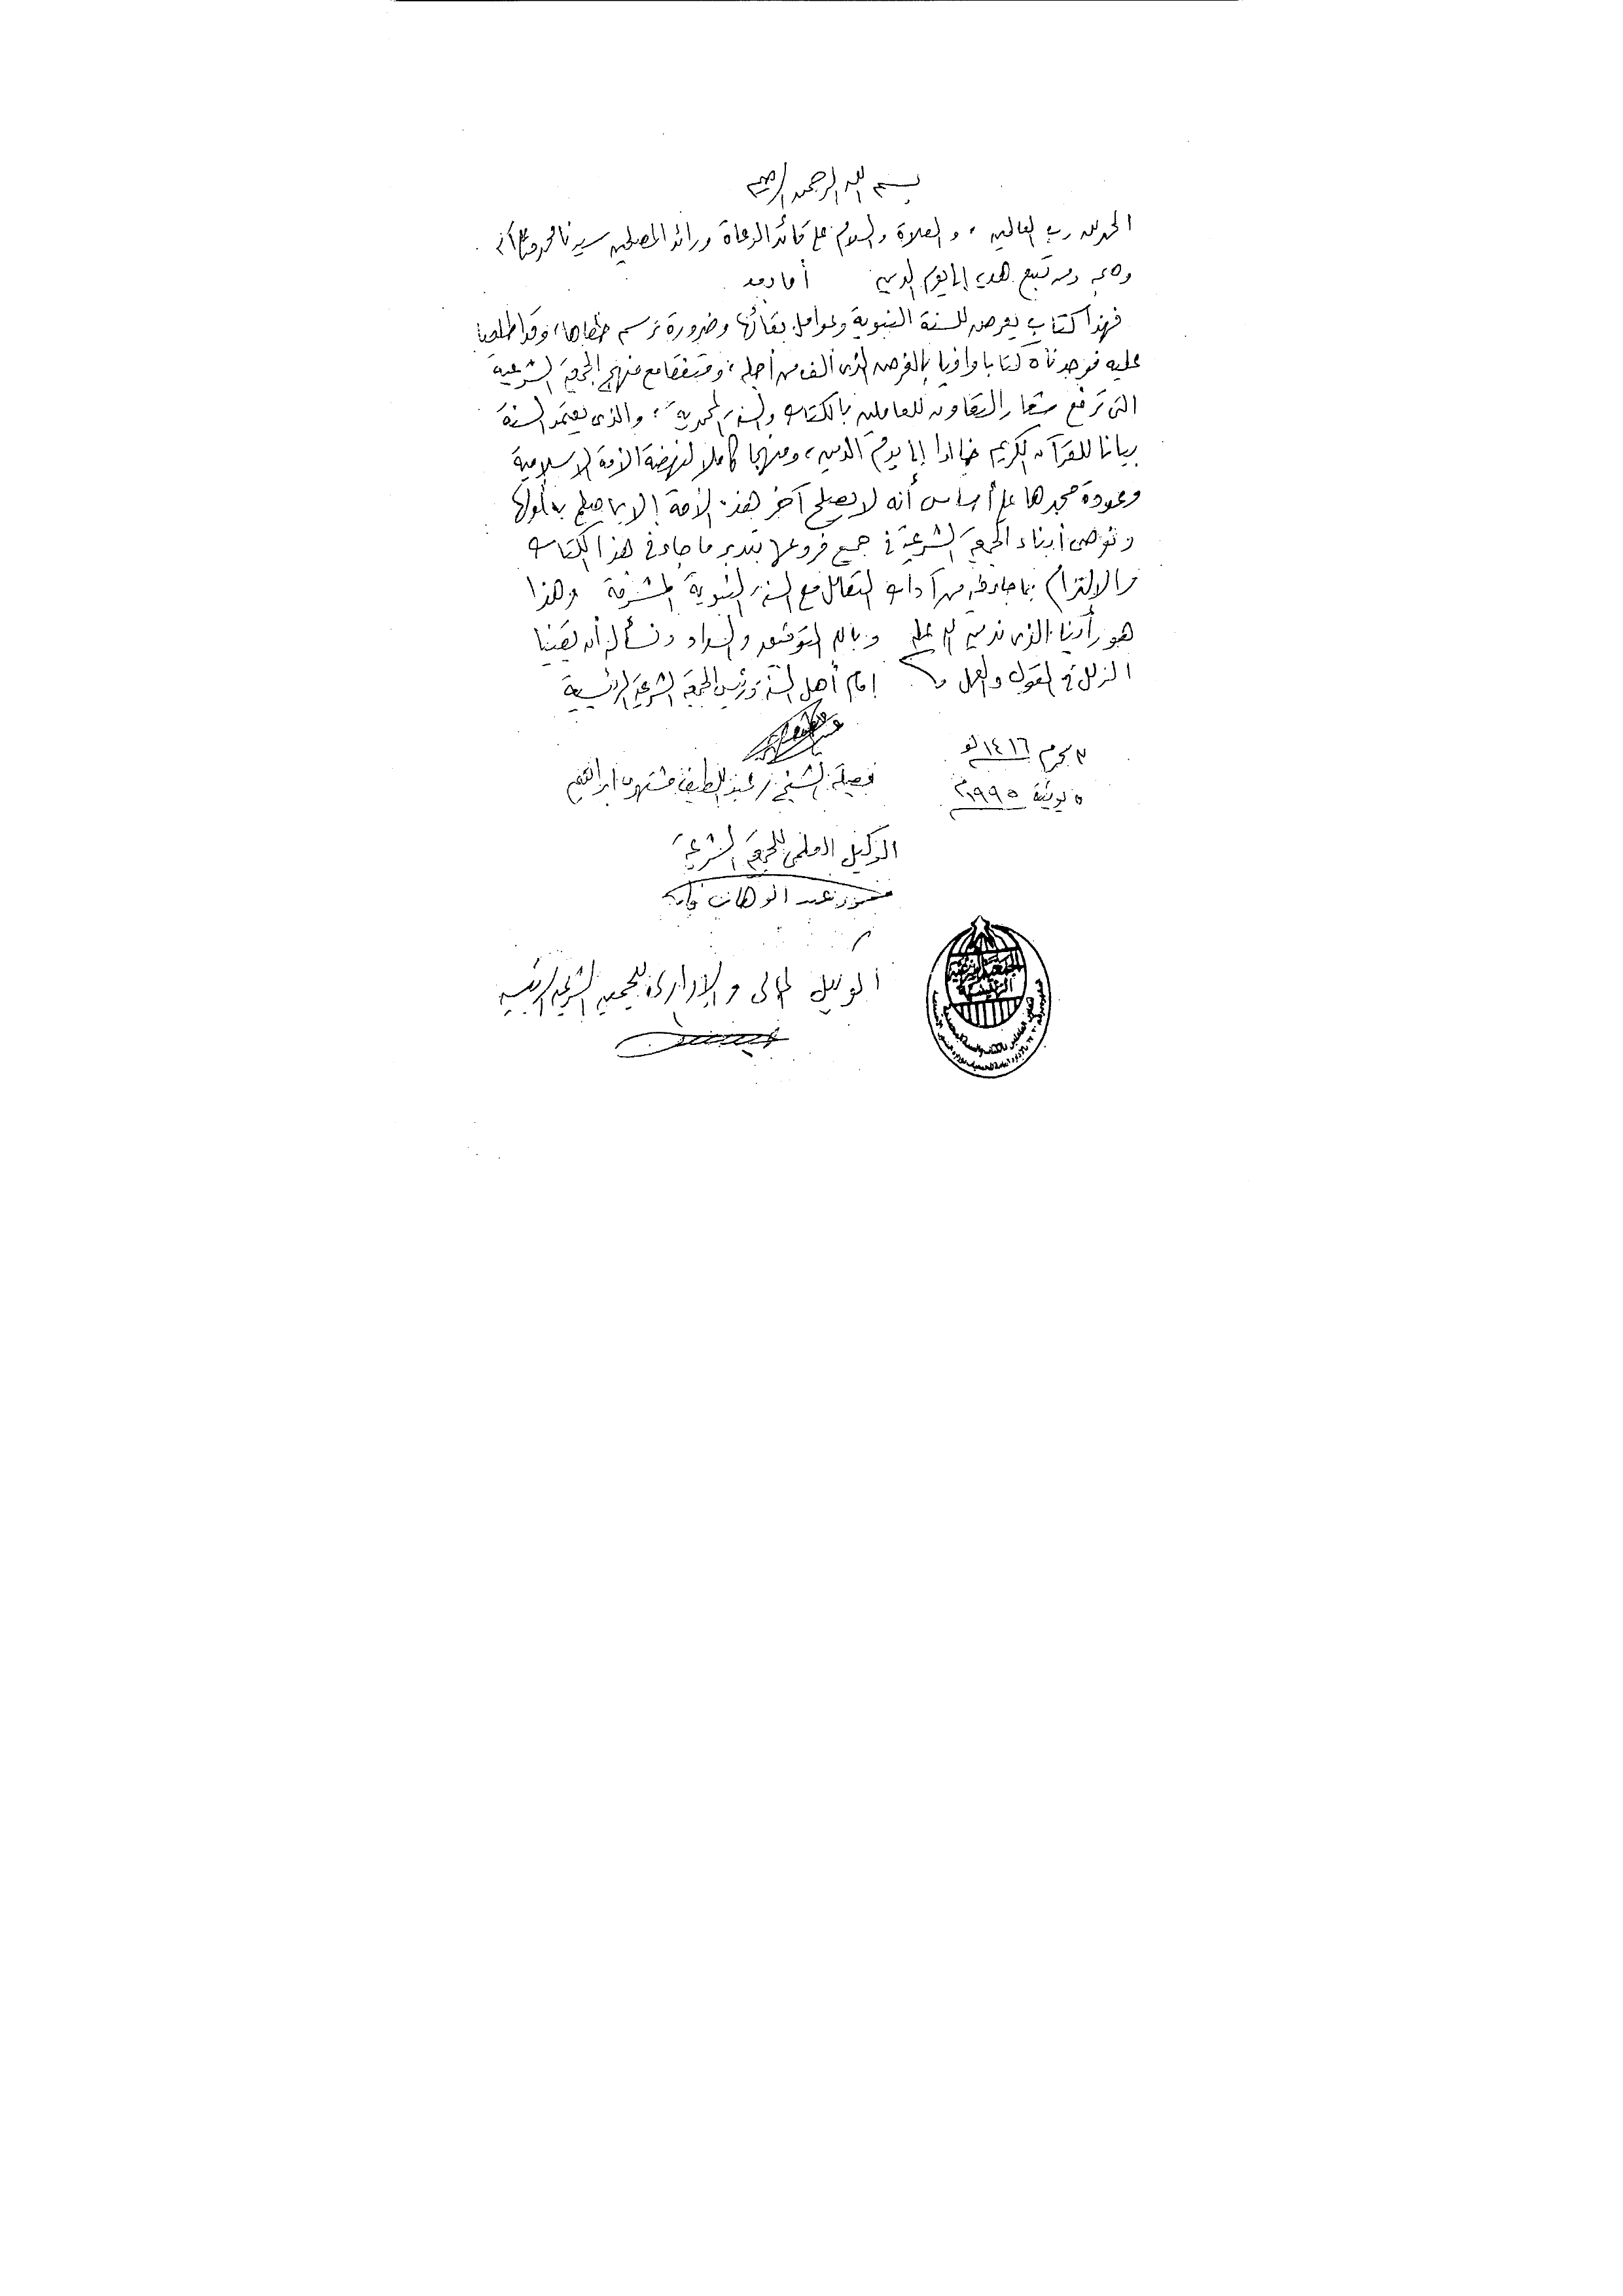 بسم الله الرحمن الرحيم
الحمد لله رب العالمين ، والصلاة والسلام على قائد الدعاة ورائد المصلحين سيدنا محمد وعلى آله
وصحبه ومن تبع هديه إلى يوم الدين أما بعد
فهذا كتاب يعرض للسنة النبوية وعوامل بقائها وضرورة ترسم خطاها، وقد اطلعنا
عليه فوجدناه كتابا وافيا بالغرض الذى ألف من أجله ، ومتفقا مع منهج الجمعية الشرعية
التى ترفع شعار التعاون للعاملين بالكتاب والسنة المحمدية ، والذى يعتمد السنة
بيانا للقرآن الكريم خالدا إلى يوم الدين ، ومنهجا كاملا لنهضة الأمة الإسلامية
وعودة مجدها على أساس أنه لا يصلح آخر هذه الأمة إلا بما صلح به أولها
ونوصى أبناء الجمعية الشرعية فى جميع فروعها بتدبر ما جاء فى هذا الكتاب
والالتزام بما جاء فيه من آداب التعامل مع السنة النبوية المشرفة وهذا
هو رأينا الذى ندين لله عليه وبالله التوفيق والسداد ونسأله أن يقينا
الزلل فى القول والعمل إمام أهل السنة ورئيس الجمعية الشرعية الرئيسية
محرم ١٤١٦ هـ
٥ يونية ١٩٩٥م
فضيلة الشيخ / عبد اللطيف مشتهرى إبراهيم
الوكيل العلمى للجمعية الشرعية
عبد الوهاب فايد
الوكيل المالى والإدارى للجمعية الشرعية الرئيسية
الجمعية الشرعية
الرئيسية